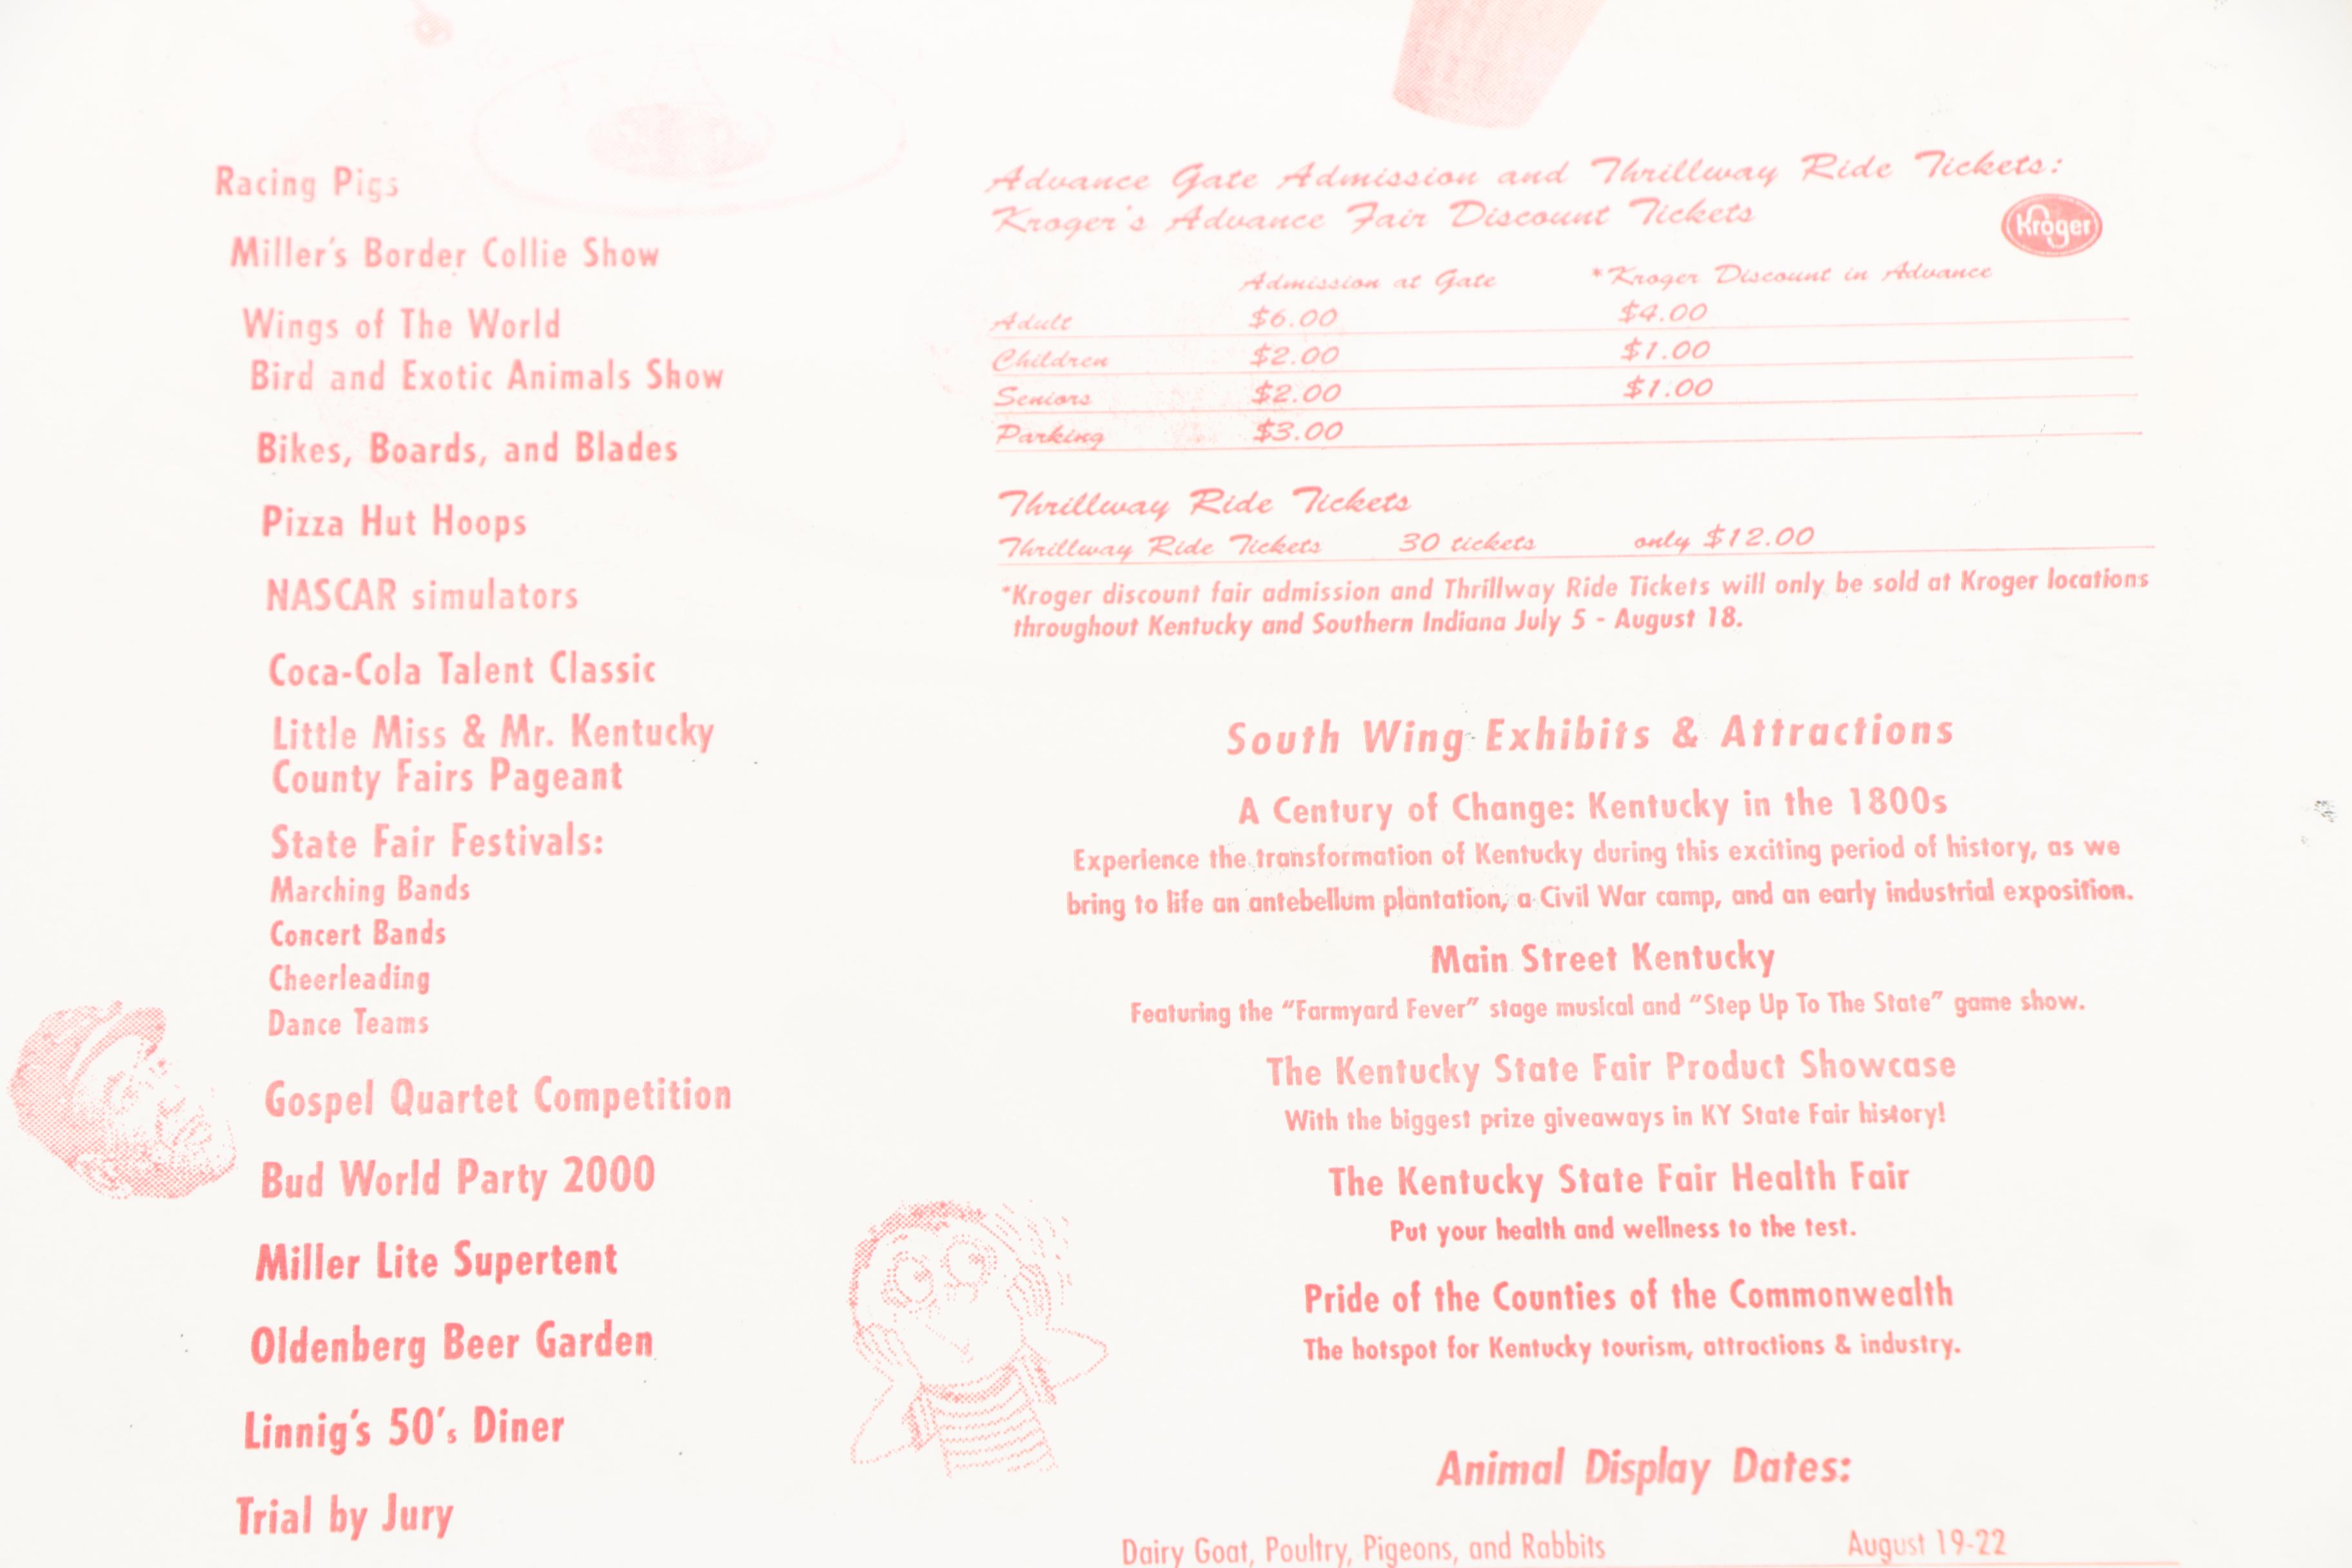 Racing Pigs
Miller's Border Collie Show
Wings of The World
Bird and Exotic Animals Show
Bikes, Boards, and Blades
Pizza Hut Hoops
NASCAR simulators
Coca-Cola Talent Classic
Little Miss & Mr. Kentucky
County Fairs Pageant
State Fair Festivals:
Marching Bands
Concert Bands
Cheerleading
Dance Teams
Gospel Quartet Competition
Bud World Party 2000
Miller Lite Supertent
Oldenberg Beer Garden
Linnig's 50's Diner
Trial by Jury
Advance Gate Admission and Thrillway Ride Tickets:
Kroger's Advance Fair Discount Tickets
Kroger
Admission at Gate *Kroger Discount in Advance
Adult $6.00 $4.00
Children $2.00 $1.00
Seniors $2.00 $1.00
Parking $3.00
Thrillway Ride Tickets
Thrillway Ride Tickets 30 tickets only $12.00
*Kroger discount fair admission and Thrillway Ride Tickets will only be sold at Kroger locations
throughout Kentucky and Southern Indiana July 5 - August 18.
South Wing Exhibits & Attractions
A Century of Change: Kentucky in the 1800s
Experience the transformation of Kentucky during this exciting period of history, as we
bring to life an antebellum plantation, a Civil War camp, and an early industrial exposition.
Main Street Kentucky
Featuring the "Farmyard Fever" stage musical and "Step Up To The State" game show.
The Kentucky State Fair Product Showcase
With the biggest prize giveaways in KY State Fair history!
The Kentucky State Fair Health Fair
Put your health and wellness to the test.
Pride of the Counties of the Commonwealth
The hotspot for Kentucky tourism, attractions & industry.
Animal Display Dates:
Dairy Goat, Poultry, Pigeons, and Rabbits August 19-22